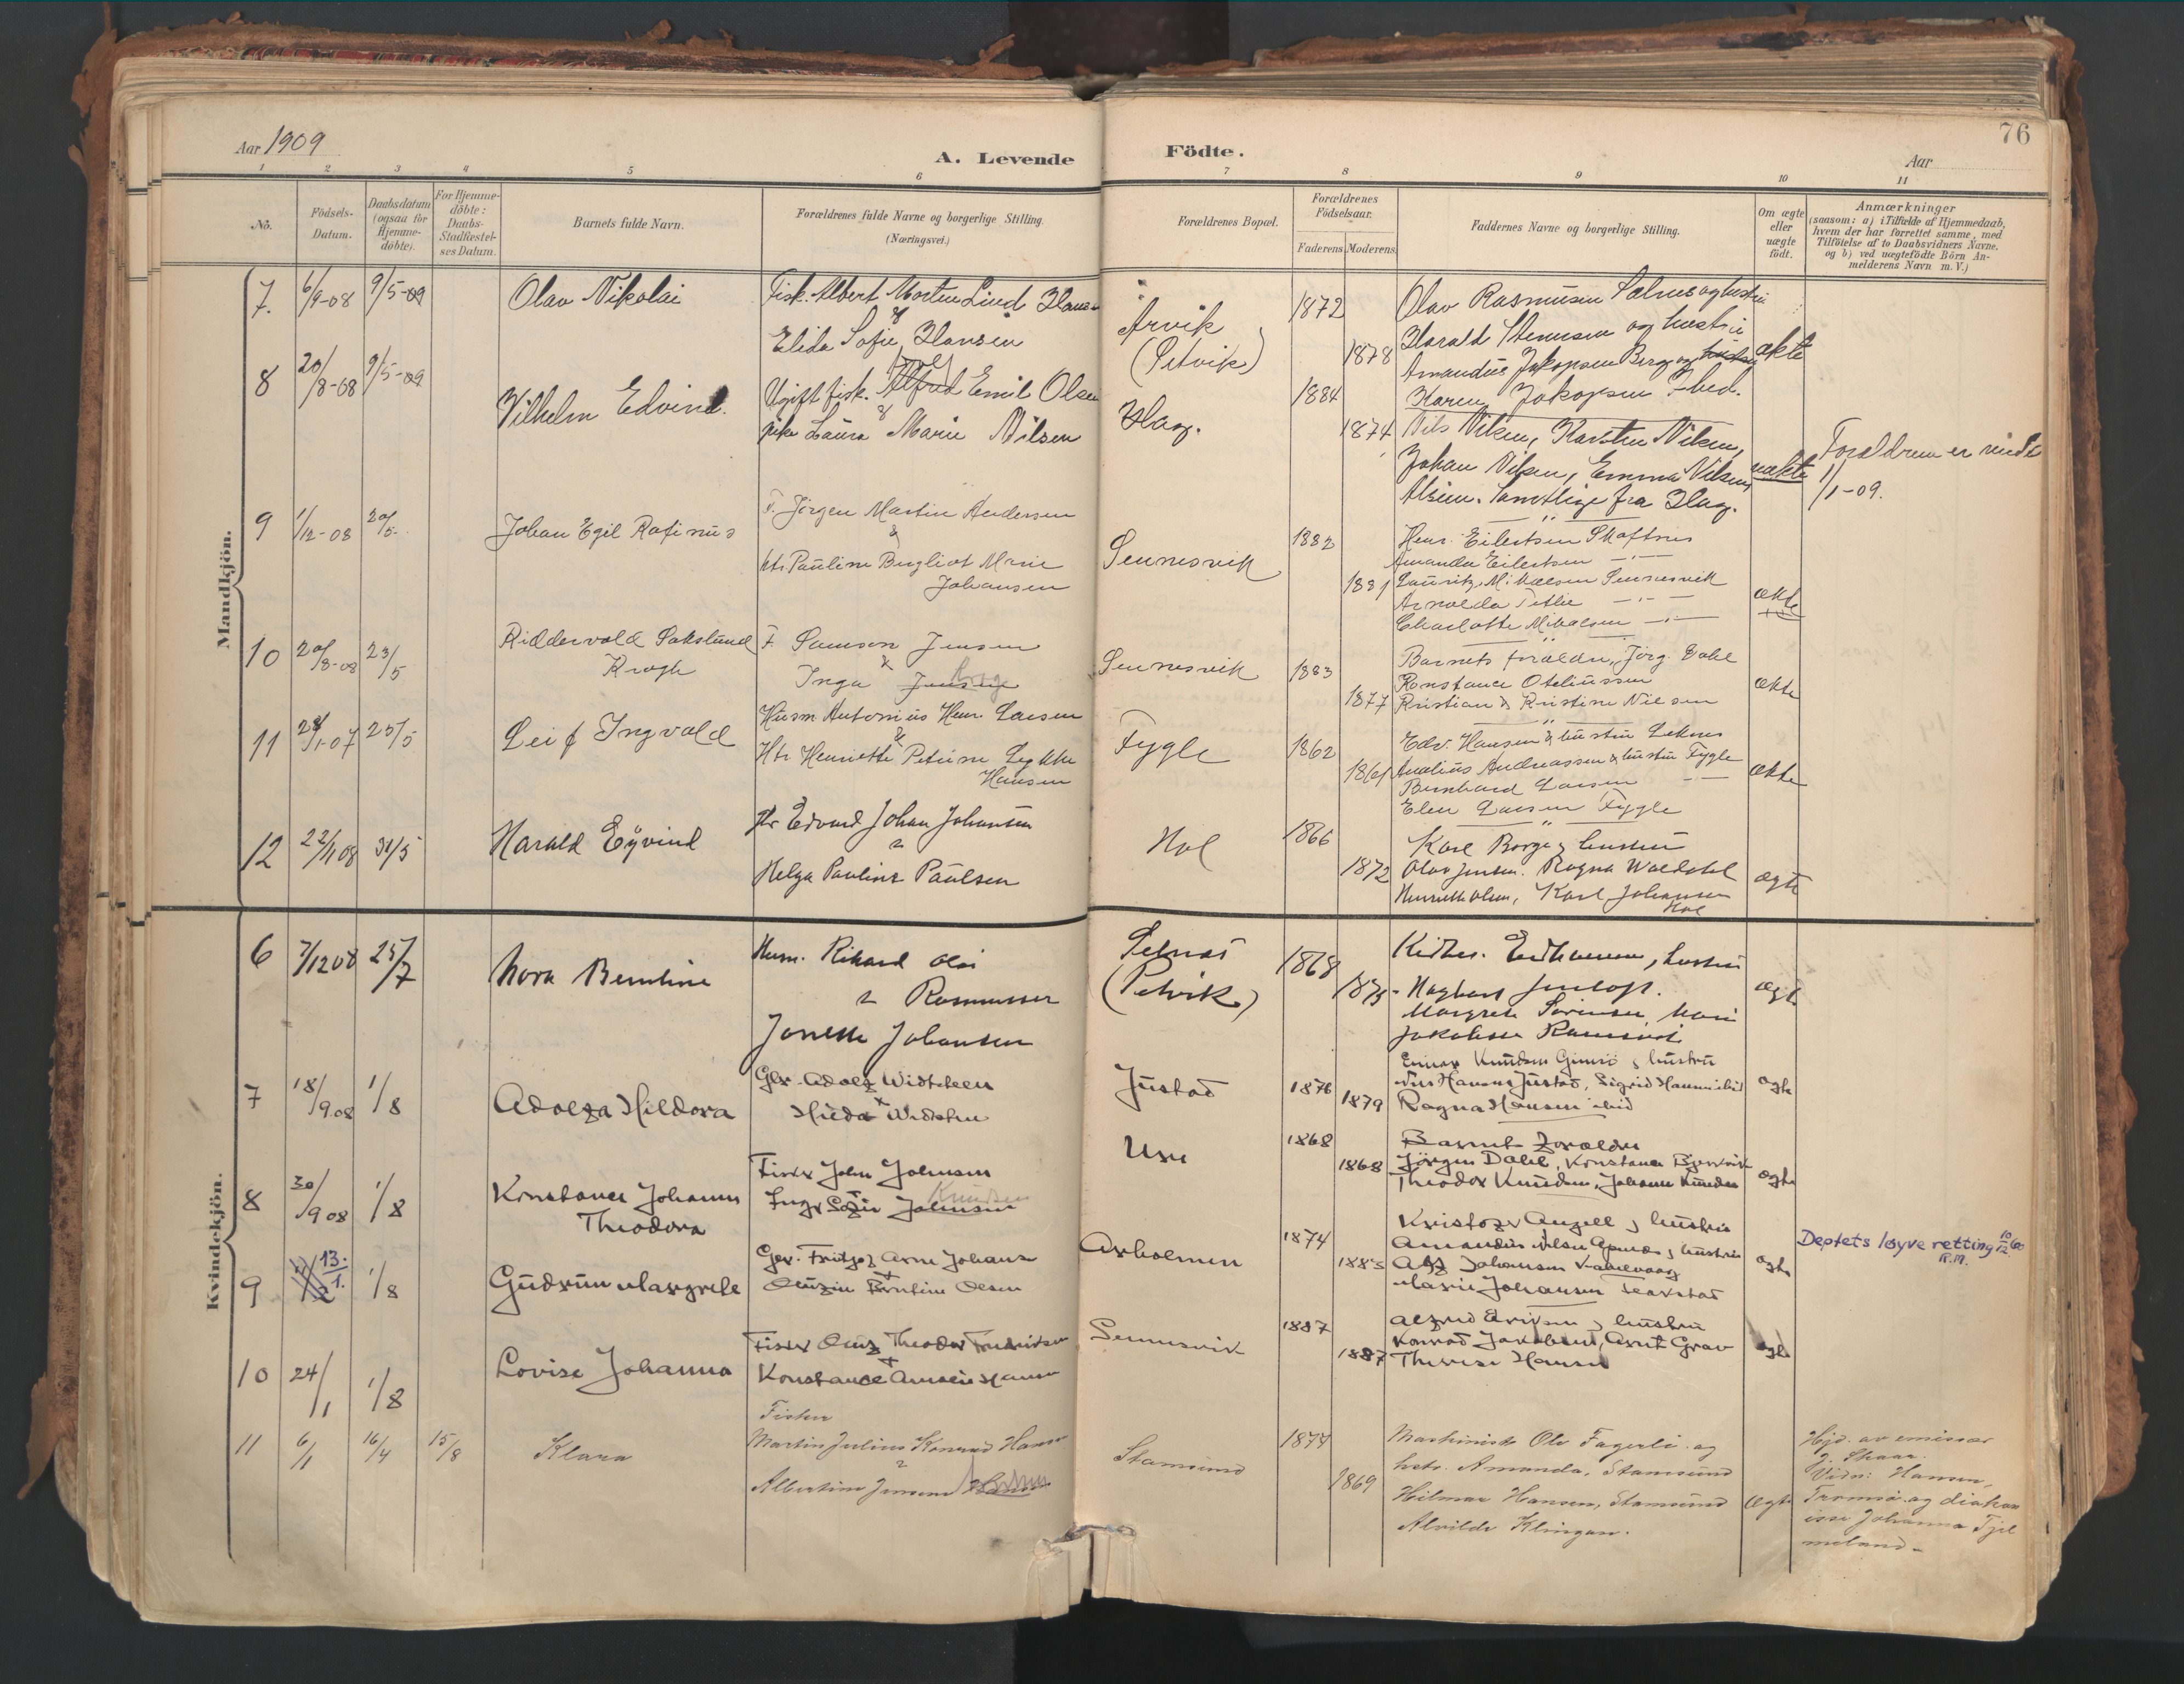 Aar 1909
A. Levende
Födte.
Aar
76
1 2 3 4 5 6 7 8 9 10 11
No.
Födsels-
Datum.
Daabsdatum
(ogsaa for
Hjemme-
döbte).
For Hjemme-
döbte:
Daabs-
Stadfæstel-
ses Datum.
Barnets fulde Navn.
Forældrenes fulde Navne og borgerlige Stilling.
(Næringsvei.)
Forældrenes Bopæl.
Forældrenes
Födselsaar.
Faderens Moderens
Faddernes Navne og borgerlige Stilling.
Om ægte
eller
uægte
født.
Anmærkninger
(saasom: a) i Tilfælde af Hjemmedaab,
hvem der har forrettet samme, med
Tilföielse af to Daabsvidners Navne.
og b) ved uægtefödte Börn An-
melderens Navn m. V.)
Mandkjön.
7. 6/9-08 9/5-09 Olav Nikolai
Fisk. Albert Morten Lind Hansen
&
Elida Sofie Hansen
Arvik
(Petvik)
1872
1878
Olav Rasmusen Solnes og hustru
Harald Stensen og hustru
Amandus Jakopsen Berg og hustru
Karen Jakopsen Ibed.
ækte
8 20/8-08 9/5-09 Vilhelm Edvind.
Ugift fisk. Alfred Emil Olsen
&
pike Laura Marie Nilsen
Hag.
1884
1874
Nils Nilsen, Karsten Nilsen,
Johan Nilsen, Emma Nilsen,
Olsen. Samtlige fra Hag.
uækte
Forældrene er viede
11/1-09.
9 1/12-08 20/5 Johan Egil Rafinus
F. Jörgen Martin Andersen
&
htr. Pauline Bergliot Marie
Johansen
Sennesvik
1882
1881
Henr. Eilertsen Skaftnes
Amanda Eilertsen
Lauritz Mikalsen Sennesvik
Arnolda Petlie
Charlotte Mikalsen
ækte
10 20/8-08 23/5 Riddervold Sakslund
Krogh
F. Samson Jensen
&
Inga Jensen
Sennesvik
1883
1877
Barnets forældre, Jörg. Dahl
Konstance Oteliussen
Kristian & Kristine Nielsen
ækte
11 28/1-07 25/5 Leif Ingvald
Husm. Antonius Henr. Larsen
&
Htr Henriette Petrine Lykke
Hansen
Fygle
1862
1861
Edv. Hansen & hustru Leknes
Analius Andreassen & hustru Fygle
Bernhard Larsen
Elen Larsen Fygle
ækte
12 22/11 08 31/5 Harald Eyvind
Edvard Johan Johansen
&
Helga Pauline Paulsen
Hol
1866
1872
Karl Borge, hustru
Olav Jensen. Ragna Woldstad
Henriette Olsen, Karl Johansen
Hol
ægte
Kvindekjön.
6 7/12 08 25/7 Nora Berntine
Husm. Rikard Olai
& Rasmussen
Jonette Johansen
Petnes
(Petvik)
1868
1873
Hagbart
Margrete Sörensen, Marie
Jakobsen
ægte
7 18/9 08 1/8 Adolfa Hildora
Gbr. Adolf Widtsteen
×
Hilda Widsteen
Justad
1876
1879
Einar Knudsen Gimsö, hustru
Nils Hansen Justad, Sigrid Hansen ibid
Ragna Hansen ibid
ægte
8 30/9 08 1/8 Konstance Johanna
Theodora
Fisker John Johnsen
+
Inger Sofie Johnsen
Knudsen
Ure
1868
1868
Barnets Forældre
Jörgen Dahl, Konstance Bjerkvik
Theodor Knudsen, Johanna Knudsen
ægte
9 13./1. 1/8 Gudrun Margrete
Gbr. Fritjof Arne Johans
+
Oluzie Berntine Olsen
Axholmen
1874
1883
Kristofer Angell, hustru
Amandus Nilsen Apnes, hustru
Alf Johansen
Marie Johansen
ægte
Deptets løyve retting 10/12 60
R.M.
10 24/1 1/8 Lovise Johanna
Fisker Oluf Theodor Fredriksen
+
Konstance Amalie Hansen
Sennesvik
1887
1887
Alfred Eriksen, hustru
Konrad Jakobsen, Arnt Grav
Therese Hansen
ægte
11 6/1 16/4 15/8 Klara
Fisker
Martin Julius Konrad Hansen
&
Albertine Jensen Hansen
Stamsund
1874
1869
Maskinist Ole Fagerli og
hstr. Amanda, Stamsund
Hilmar Hansen, Stamsund
Alvilde Klingan.
Ægte
Hjd. av emissær
J. Skaar.
Vidn: Hansen,
Tromsö og diakon
isse Johanna Tjel
meland.